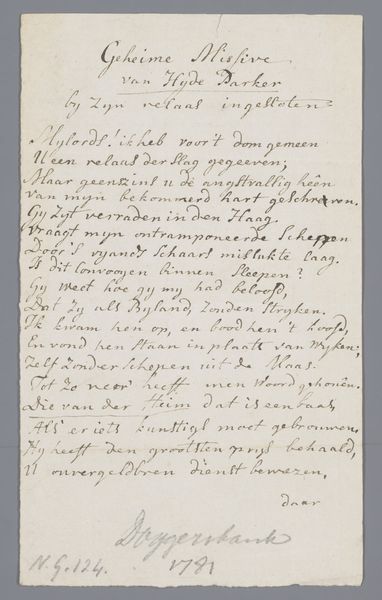 Geheime Missive
van Hyde Parker
by Zyn relaas ingesloten
Mylords! ik heb voor't dom gemeen
U een relaas der Slag gegeeven,
Maar geenszins u de angstvallig heên
van myn bekommerd hart geschreven.
Gy Zyt verraden in den Haag.
vraagt myn ontramponeerde Schepen
Door's vyands Schaars mislukte laag.
Is dit Convooyen binnen Sleepen?
Gy weet hoe gy my had beloofd,
Dat Zy als Byland, Zonden Stryken.
Ik kwam hen op, en bood hen 't hoofd,
En vond hen Staan in plaats van Wyken;
Zelf Zonder Schepen uit de Maas.
Tot Zo veer heeft men Woord gehouên.
die van der Heim dat is een baas,
Als er iets kunstigs moet gebrouwen,
Hy heeft den grootsten prys behaald,
U onvergeldbren dienst bewezen,
daar
Doggersbank
1781
N.G. 124.